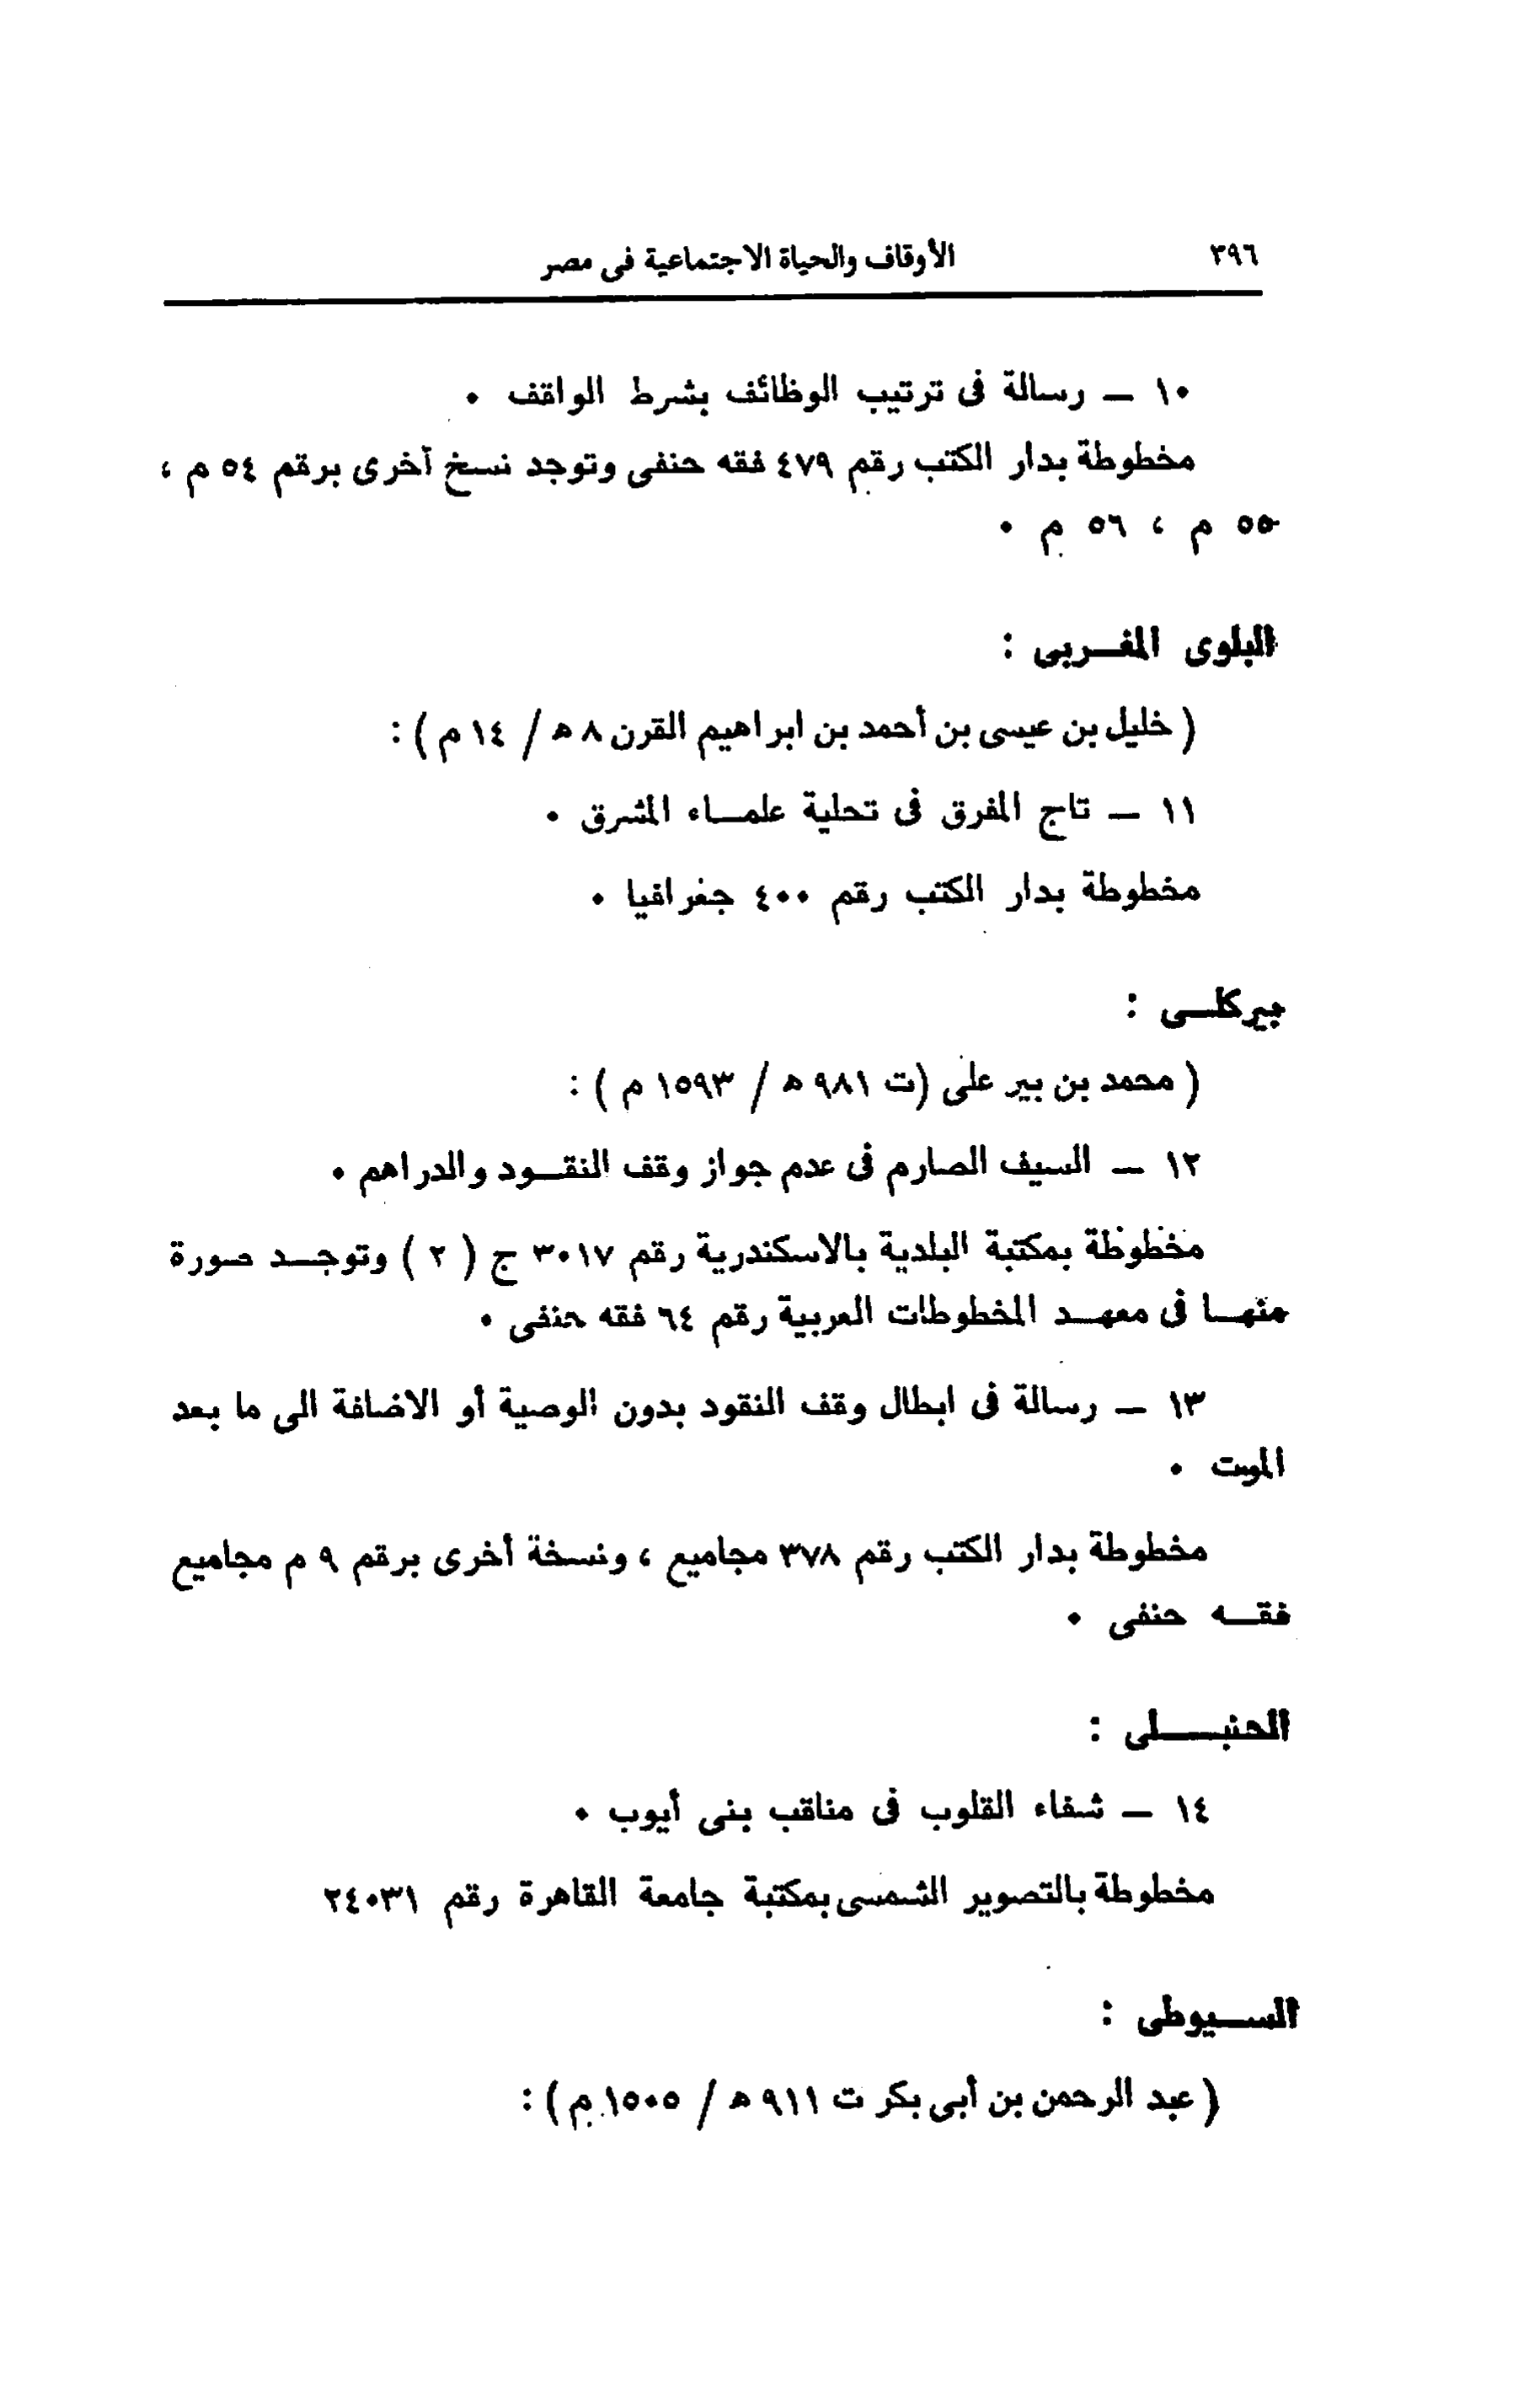 ٣٩٦ الأوقاف والحياة الاجتماعية فى مصر
١٠ — رسالة فى ترتيب الوظائف بشرط الواقف ٠
مخطوطة بدار الكتب رقم ٤٧٩ فقه حنفى وتوجد نسخ أخرى برقم ٥٤ م ،
٥٥ م ، ٥٦ م ٠
البلوى المغـربى :
( خليل بن عيسى بن أحمد بن ابراهيم القرن ٨ ه / ١٤ م ) :
١١ — تاج المفرق فى تحلية علمـاء المشرق ٠
مخطوطة بدار الكتب رقم ٤٠٠ جغرافيا ٠
بيركلـى :
( محمد بن بير على (ت ٩٨١ ه / ١٥٩٣ م ) :
١٢ — السيف الصارم فى عدم جواز وقف النقـود والدراهم ٠
مخطوطة بمكتبة البلدية بالاسكندرية رقم ٣٠١٧ ج ( ٢ ) وتوجـد صورة
منهـا فى معهـد المخطوطات العربية رقم ٦٤ فقه حنفى ٠
١٣ — رسالة فى ابطال وقف النقود بدون الوصية أو الاضافة الى ما بعد
الموت ٠
مخطوطة بدار الكتب رقم ٣٧٨ مجاميع ، ونسخة أخرى برقم ٩ م مجاميع
فقـه حنفى ٠
الحنبـــلى :
١٤ — شفاء القلوب فى مناقب بنى أيوب ٠
مخطوطة بالتصوير الشمسى بمكتبة جامعة القاهرة رقم ٢٤٠٣١
السـيوطى :
( عبد الرحمن بن أبى بكر ت ٩١١ ه / ١٥٠٥ م ) :